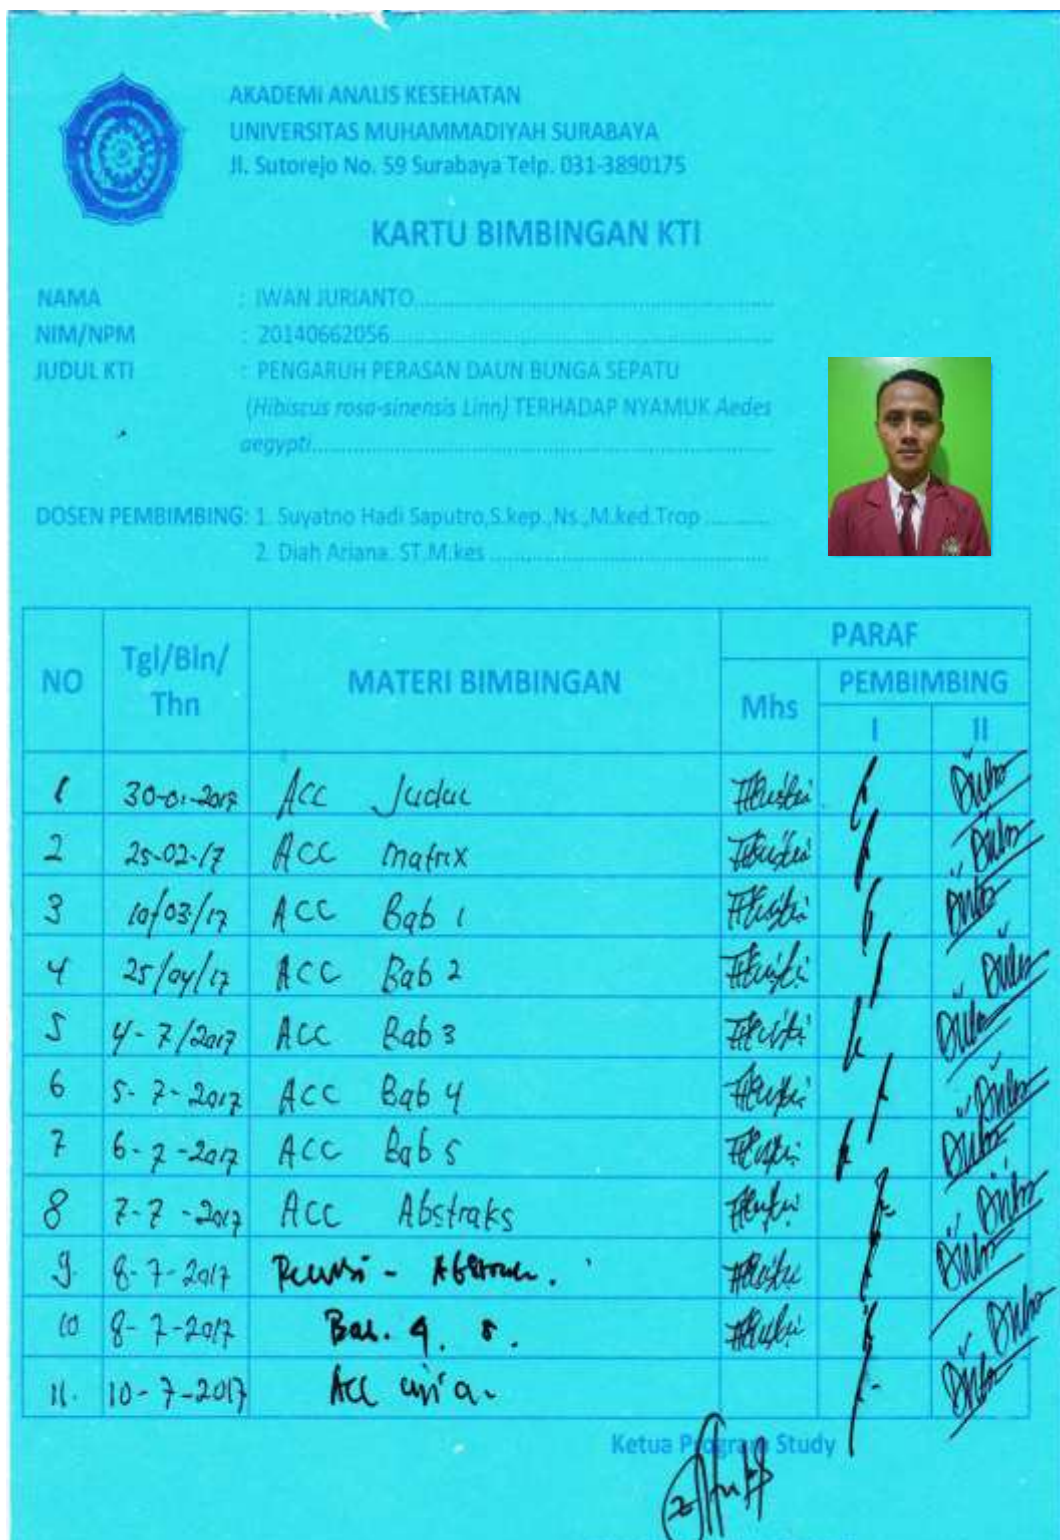 AKADEMI ANALIS KESEHATAN
UNIVERSITAS MUHAMMADIYAH SURABAYA
Jl. Sutorejo No. 59 Surabaya Telp. 031-3890175
KARTU BIMBINGAN KTI
NAMA : IWAN JURIANTO
NIM/NPM : 20140662056
JUDUL KTI : PENGARUH PERASAN DAUN BUNGA SEPATU
(Hibiscus rosa-sinensis Linn) TERHADAP NYAMUK Aedes
aegypti
DOSEN PEMBIMBING: 1. Suyatno Hadi Saputro,S.kep.,Ns.,M.ked.Trop
2. Diah Ariana. ST.M.kes
NO Tgl/Bln/Thn MATERI BIMBINGAN PARAF
Mhs PEMBIMBING
I II
1 30-01-2017 Acc Judul
2 25-02-17 Acc matrix
3 10/03/17 Acc Bab 1
4 25/04/17 Acc Bab 2
5 4-7/2017 Acc Bab 3
6 5-7-2017 Acc Bab 4
7 6-7-2017 Acc Bab 5
8 7-7-2017 Acc Abstraks
9. 8-7-2017 Revisi -
10 8-7-2017 Bab. 4. 5.
11. 10-7-2017 Acc
Ketua Program Study